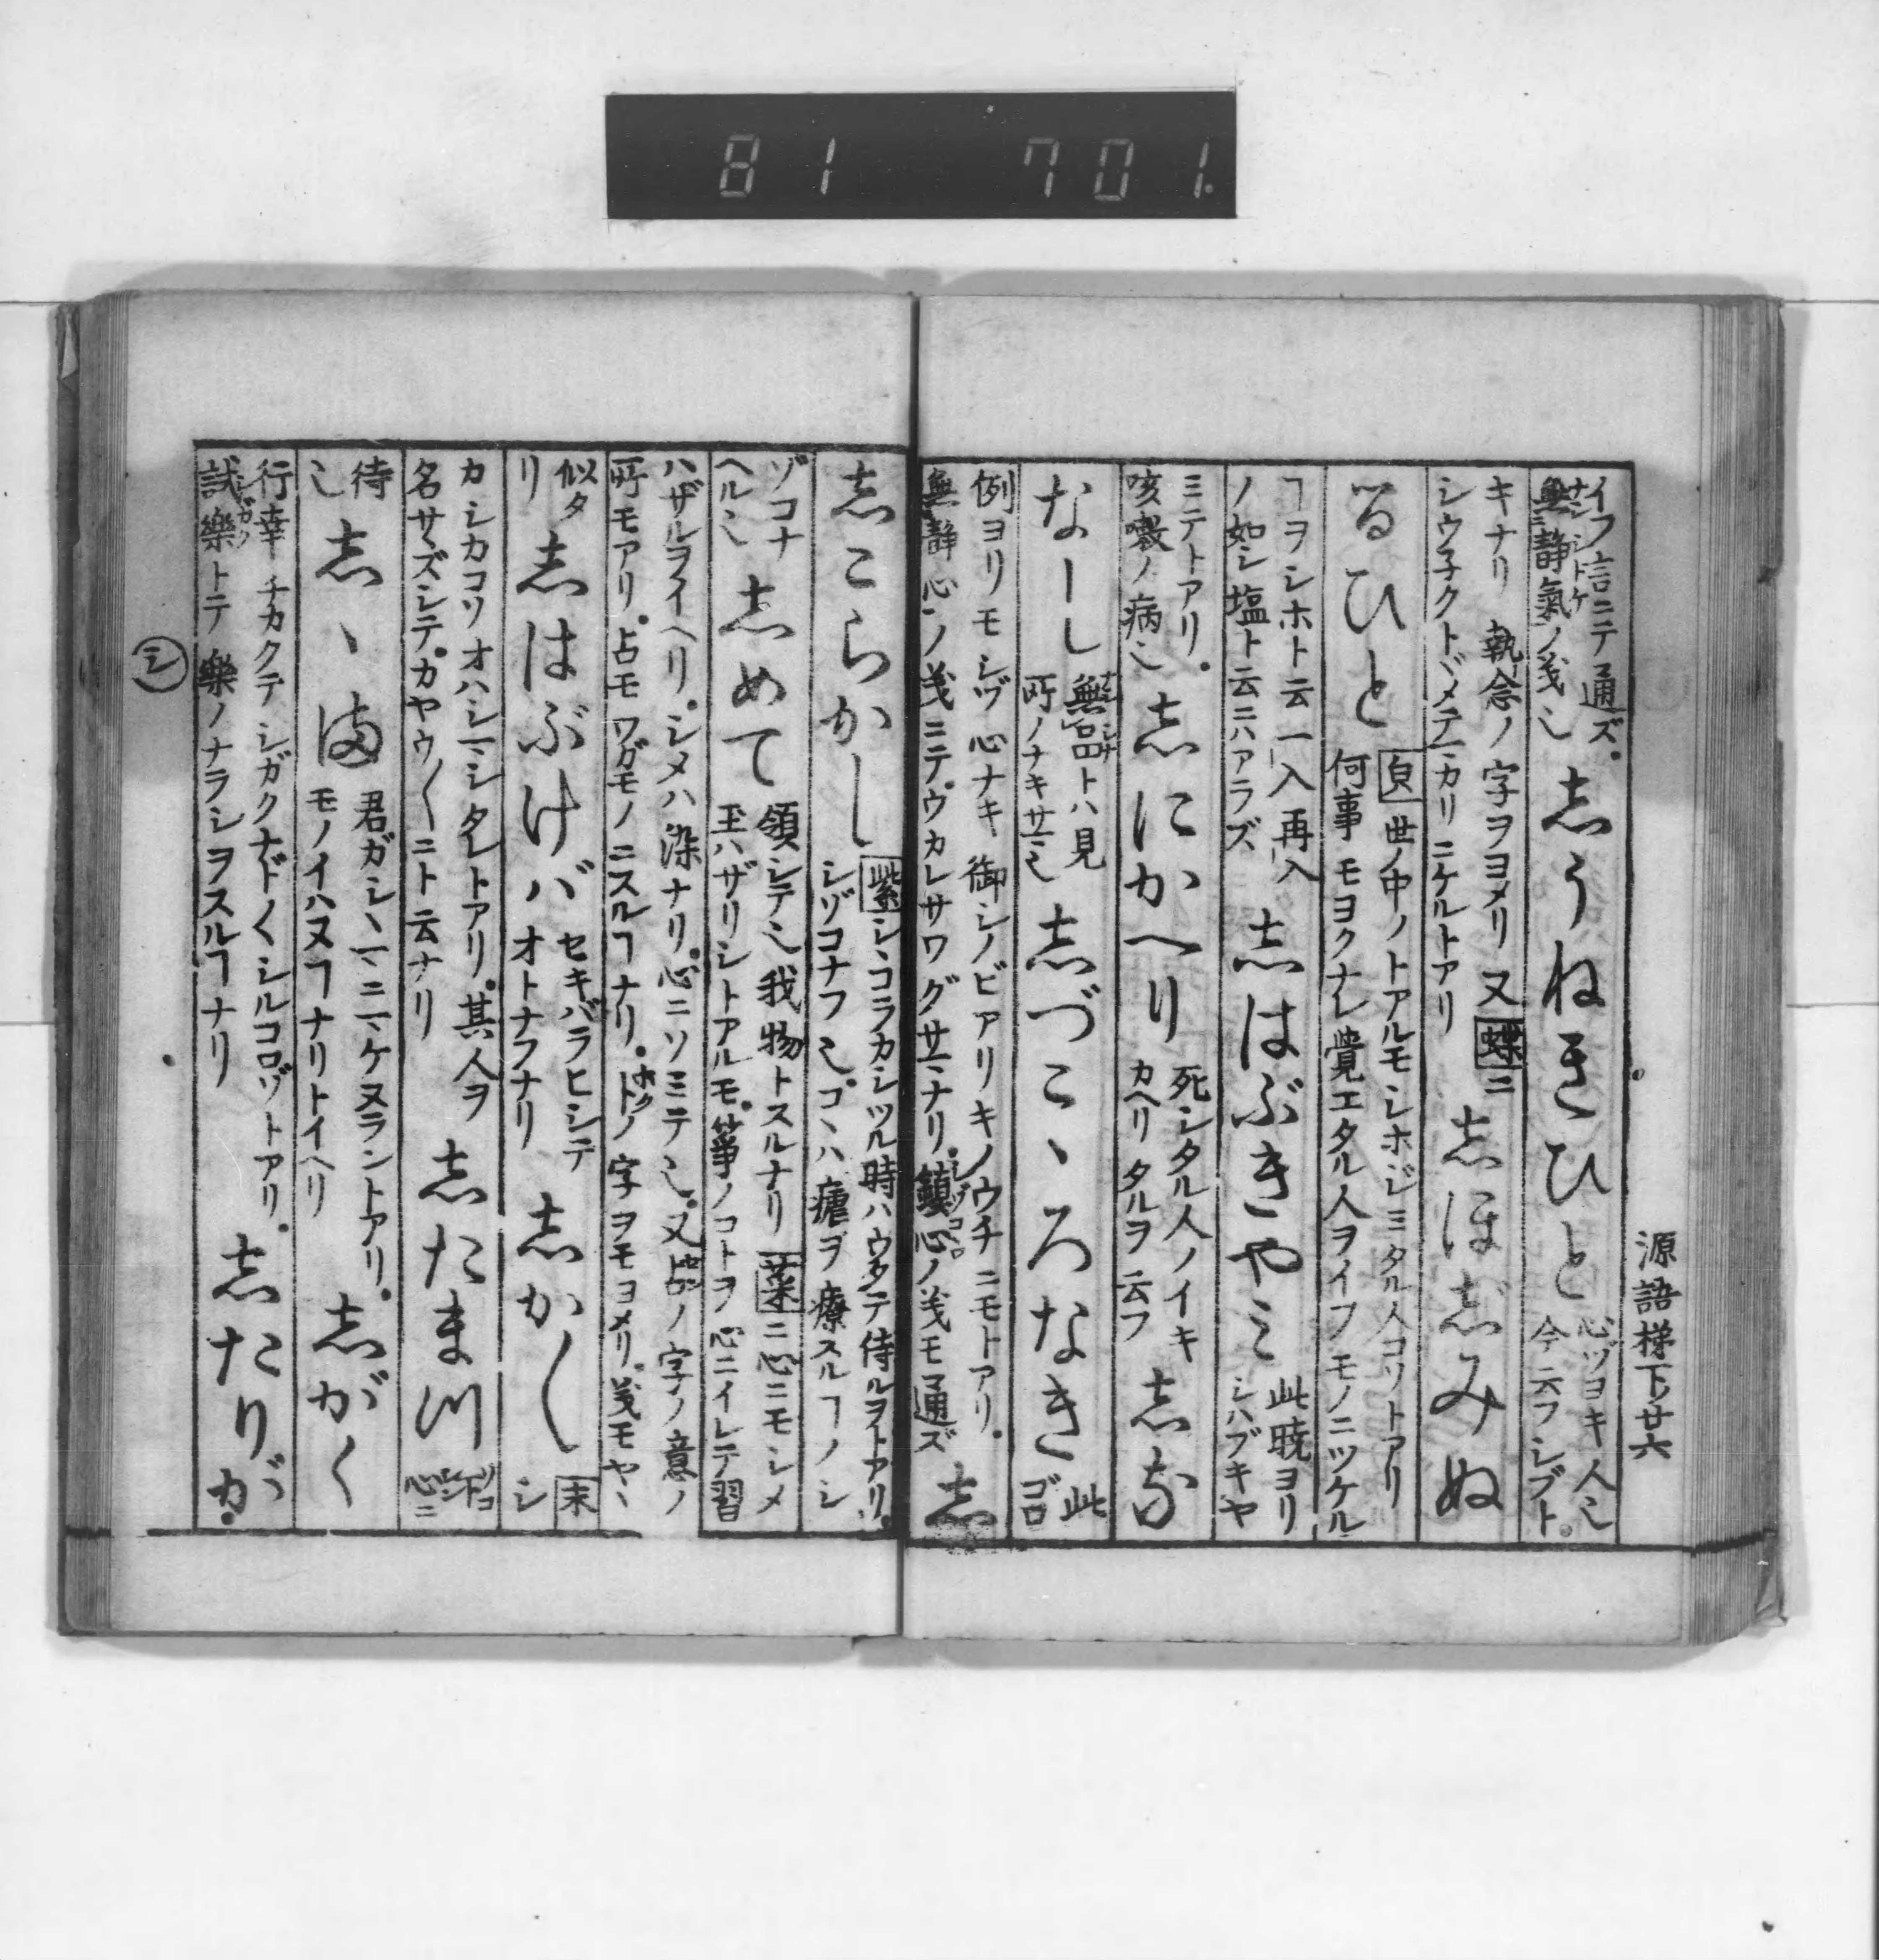 81 701.
源語梯下ノ廿六
イフ言ニテ通ズ。
無静氣ノ義也
志うねきひと
心ヅヨキ人也
今云フシブト。
キナリ 執念ノ字ヲヨメリ 又蝶ニ
シウネクトヾメテマカリニケルトアリ
志ほぢみぬ
るひと
貞 世ノ中ノトアルモシホジミタル人コソトアリ
何事モヨクナレ覚エタル人ヲイフモノニツケル
ヿヲシホト云一入再入
ノ如シ塩ト云ニハアラズ
志はぶきやミ
此暁ヨリ
シハブキヤ
ミテトアリ。
咳嗽ノ病也
志にかへり
死シタル人ノイキ
カヘリタルヲ云フ
志な
なーし
無品トハ見
所ノナキサマ也
志づこヽろなき
此
ゴロ
例ヨリモシヅ心ナキ御シノビアリキノウチニモトアリ。
無静心ノ義ニテ。ウカレサワグサマナリ。鎮心ノ義モ通ズ
志
志こらかし
紫 シコラカシツル時ハウタテ侍ルヲトアリ。
シゾコナフ也。コヽハ瘧ヲ療スルヿノシ
ゾコナ
ヘル也
志めて
領シテ也我物トスルナリ 葉ニ心ニモシメ
玉ハザリシトアルモ。箏ノコトヲ心ニイレテ習
ハザルヲイヘリ。シメハ染ナリ。心ニソミテ也。又占ノ字ノ意ノ
所モアリ。占モワガモノニスルヿナリ。トノ字ヲモヨメリ。義モヤヽ
似タ
リ
志はぶけバ
セキバラヒシテ
オトナフナリ
志かし
末
シ
カシカコソオハシマシタレトアリ。其人ヲ
名サヽズシテ。カヤウ〱ニト云ナリ
志たま川
下
心ニ
待
也
志ヽま
君ガシヽマニマケヌラントアリ。
モノイハヌヿナリトイヘリ
志がく
行幸チカクテシガクナド〱シルコロゾトアリ。
試樂トテ樂ノナラシヲスルヿナリ
志たりが
ガ。
シ